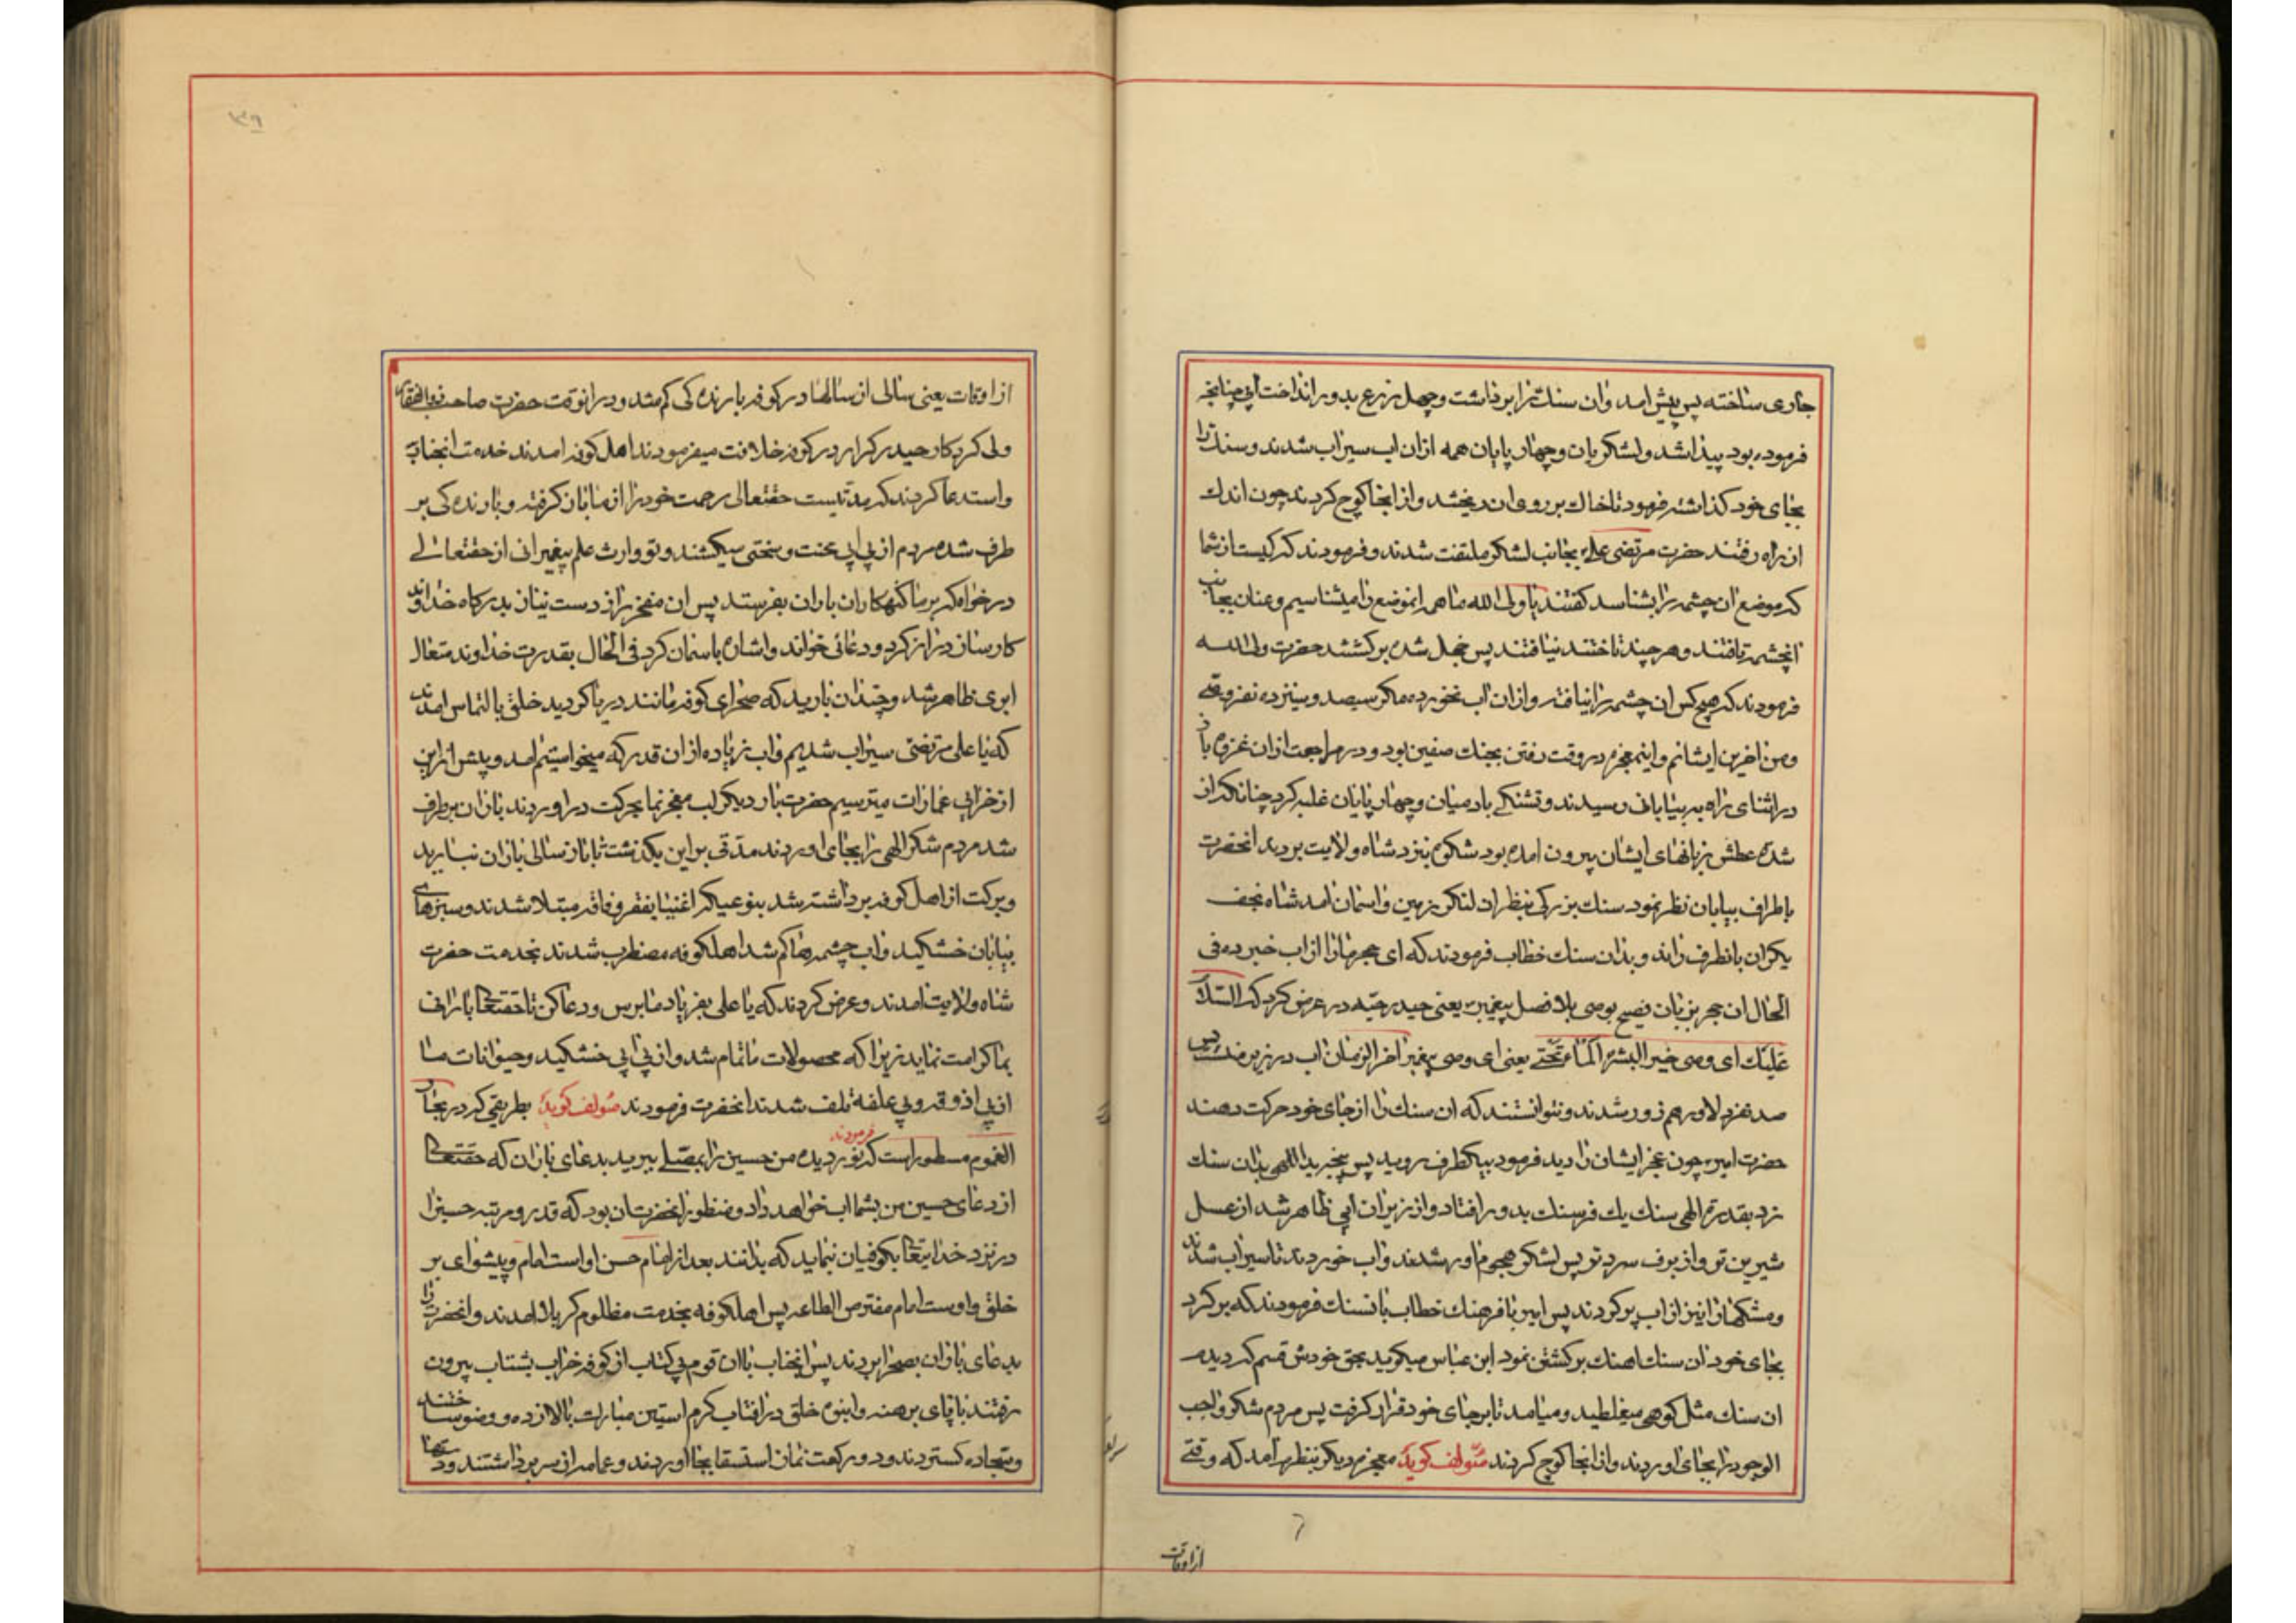 جاری ساخته پس پیش امد وان سنك را برداشت وچهل زرع بدور انداخت ابی چنانچه
فرموده بود پیدا شد ولشکریان وچهار پایان همه ازان اب سیراب شدند وسنك را
بجای خود کذاشته فرمود تا خاك بر روی ان ریختند واز انجا کوچ کردند چون اندك
ان راه رفتند حضرت مرتضی علی بجانب لشکر ملتفت شدند وفرمودند که کیست از شما
که موضع ان چشمه را بشناسد کفتند یا ولی الله ما همه انموضع را میشناسیم وعنان بجانب
انچشمه تافتند وهر چند تاختند نیافتند پس خجل شده برکشتند حضرت ولی الله
فرمودند که هیچ کس ان چشمه را نیافته وازان اب نخورده مکر سیصد وسیزده نفر وصی
ومن اخرین ایشانم واینمعجزه در وقت رفتن بجنك صفین بود ودر مراجعت ازان غزوه باز
در اثنای راه به بیابانی رسیدند وتشنکی بادمیان وچهار پایان غلبه کرد چنانکه از
شده عطش زبانهای ایشان بیرون امده بود شکوه بنزد شاه ولایت بردند انحضرت
باطراف بیابان نظر نمود سنك بزرکی بنظر ان لنکر زمین واسمان امد شاه نجف
یکران بانطرف راند وبدان سنك خطاب فرمودند که ای حجر مارا از اب خبر ده فی
الحال ان حجر بزبان فصیح بوصی بلا فصل پیغمبر یعنی حیدر حیه در عرض کرد که السلام
علیك ای وصی خیر البشر الماء تحتی یعنی ای وصی پیغمبر اخر الزمان اب در زیر منست پس
صد نفر دلاور هم زور شدند ونتوانستند که ان سنك را از جای خود حرکت دهند
حضرت امیر چون عجز ایشان را دید فرمود بیکطرف روید پس پنجه ید اللهی بدان سنك
زد بقدرة الهی سنك یك فرسنك بدور افتاد واز زیر ان ابی ظاهر شد از عسل
شیرین تر واز برف سرد تر پس لشکر هجوم اور شدند واب خوردند تا سیراب شدند
ومشکها را نیز از اب پر کردند پس امیر با فرهنك خطاب بانسنك فرمودند که برکرد
بجای خود ان سنك اهنك برکشتن نمود ابن عباس میکوید بحق خودش قسم که دیدم
ان سنك مثل کوهی میغلطید ومیامد تا بر جای خود قرار کرفت پس مردم شکر واجب
الوجود را بجای اوردند واز انجا کوچ کردند مؤلف کوید معجزه دیکر بنظر امد که وقتی
از اوقات
از اوقات یعنی سالی از سالها در کوفه بارنده کی کم شد ودر انوقت حضرت صاحب ذوالفقار
ولی کردکار حیدر کرار در کوفه خلافت میفرمودند اهل کوفه امدند خدمت انجناب
واستدعا کردند که مدتیست حقتعالی رحمت خود را از ما باز کرفته وبارنده کی بر
طرف شده مردم از بی ابی محنت وسختی میکشند وتو وارث علم پیغمبرانی از حقتعالی
درخواه که بر ما کنهکاران باران بفرستد پس ان مفخر راز دست نیاز بدرکاه خداوند
کارساز دراز کرد ودعائی خواند واشاره باسمان کرد فی الحال بقدرت خداوند متعال
ابری ظاهر شد وچندان بارید که صحرای کوفه مانند دریا کردید خلق بالتماس امدند
که یا علی مرتضی سیراب شدیم واب زیاده ازان قدر که میخواستیم امد وبیش ازین
از خرابی عمارات میترسیم حضرت بار دیکر لب معجز نما بحرکت در اوردند باران بر طرف
شد مردم شکر الهی را بجای اوردند مدتی بر این بکذشت تا باز سالی باران نبارید
وبرکت از اهل کوفه برداشته شد بنوعیکه اغنیا بفقر وفاقه مبتلا شدند وسبزهای
بیابان خشکید واب چشمه ها کم شد اهلکوفه مضطرب شدند بخدمت حضرت
شاه ولایت امدند وعرض کردند که یا علی بفریاد ما برس ودعا کن تا حقتعالی بارانی
بما کرامت نماید زیرا که محصولات ما تمام شد واز بی ابی خشکید وحیوانات ما
از بی اذوقه وبی علفه تلف شدند انحضرت فرمودند مؤلف کوید بطریقی که در بحار
الغموم مسطور است که فرمودند نور دیده من حسین را بمصلی ببرید بدعای باران که حقتعالی
از دعای حسین من بشما اب خواهد داد ومنظور انحضرت ان بود که قدر ومرتبه حسین را
در نزد خدایتعالی بکوفیان نماید که بدانند بعد از امام حسن او است امام وپیشوای بر
خلق واوست امام مفترض الطاعه پس اهلکوفه بخدمت مظلوم کربلا امدند وانحضرت را
بدعای باران بصحرا بردند پس انجناب باان قوم بی کتاب از کوفه خراب بشتاب بیرون
رفتند با پای برهنه وانبوه خلق در افتاب کرم استین مبارك بالا زده ووضو ساختند
وسجاده کستردند ودو رکعت نماز استسقا بجا اوردند وعمامه از سر برداشتند ودستها